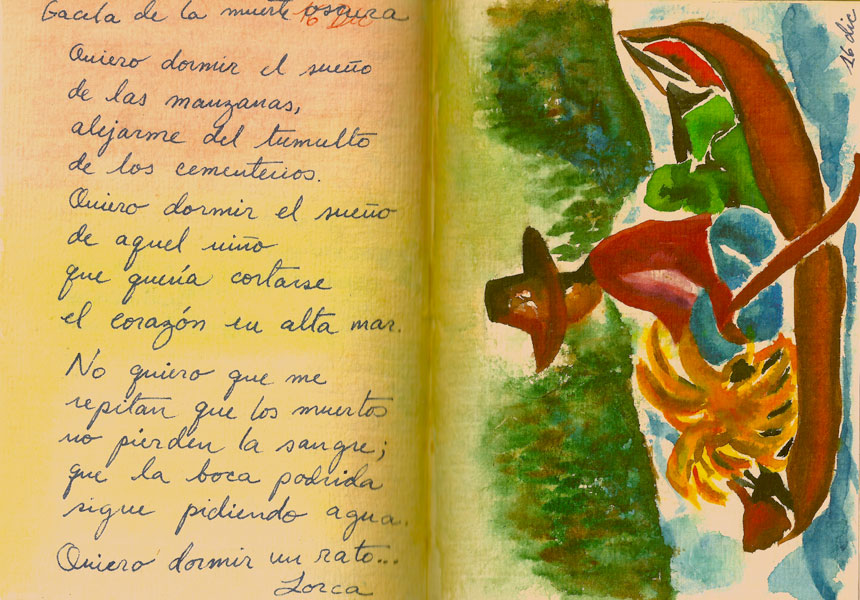 Gacela de la muerte oscura
16 Dic
Quiero dormir el sueño
de las manzanas,
alejarme del tumulto
de los cementerios.
Quiero dormir el sueño
de aquel niño
que quería cortarse
el corazón en alta mar.
No quiero que me
repitan que los muertos
no pierden la sangre;
que la boca podrida
sigue pidiendo agua.
Quiero dormir un rato...
Lorca
16 dic